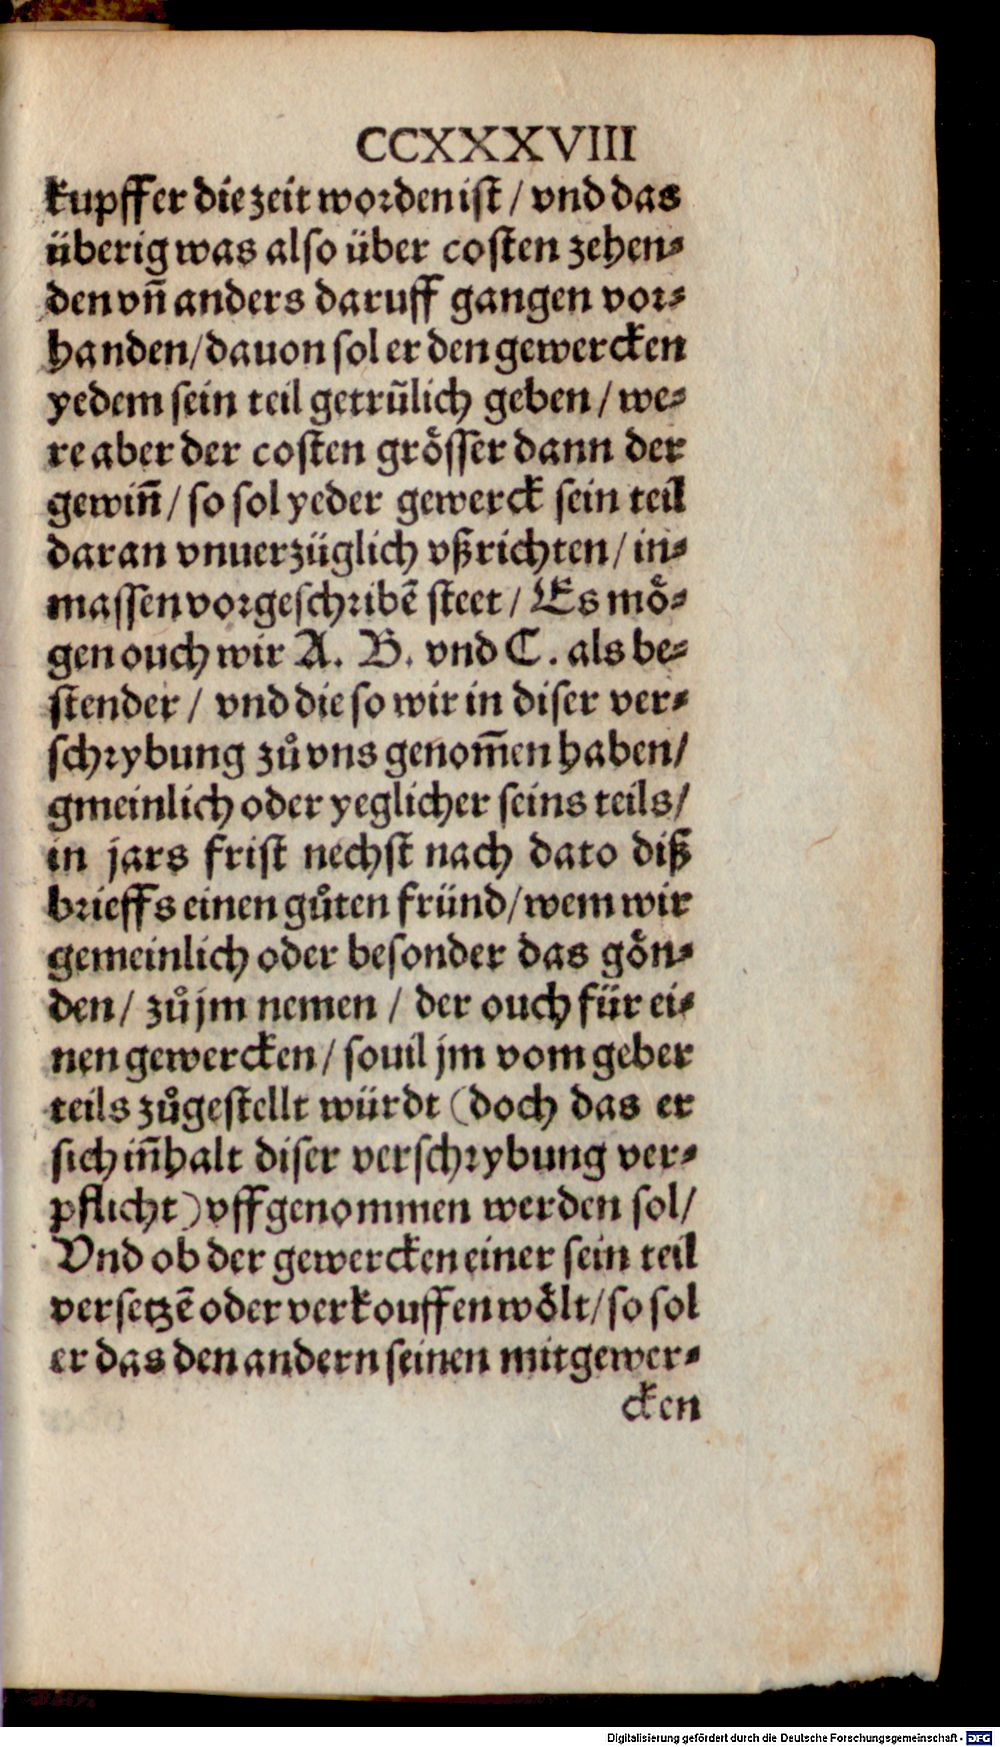 CCXXXVIII
kupffer die zeit worden ist / vnd das
überig was also über costen zehen⸗
den vñ anders daruff gangen vor⸗
handen/dauon sol er den gewercken
yedem sein teil getrũlich geben / we⸗
re aber der costen grösser dann der
gewiñ / so sol yeder gewerck sein teil
daran vnuerzüglich vßrichten / in⸗
massen vorgeschribẽ steet / Es mö⸗
gen ouch wir A. B. vnd C. als be⸗
stender / vnd die so wir in diser ver⸗
schrybung zů vns genom̃en haben/
gmeinlich oder yeglicher seins teils/
in jars frist nechst nach dato diß
brieffs einen gůten fründ/wem wir
gemeinlich oder besonder das gön⸗
den / zů jm nemen / der ouch für ei⸗
nen gewercken / souil jm vom geber
teils zůgestellt würdt (doch das er
sich iñhalt diser verschrybung ver⸗
pflicht) vffgenommen werden sol/
Vnd ob der gewercken einer sein teil
versetzẽ oder verkouffen wölt/so sol
er das den andern seinen mitgewer⸗
cken
Digitalisierung gefördert durch die Deutsche Forschungsgemeinschaft - DFG